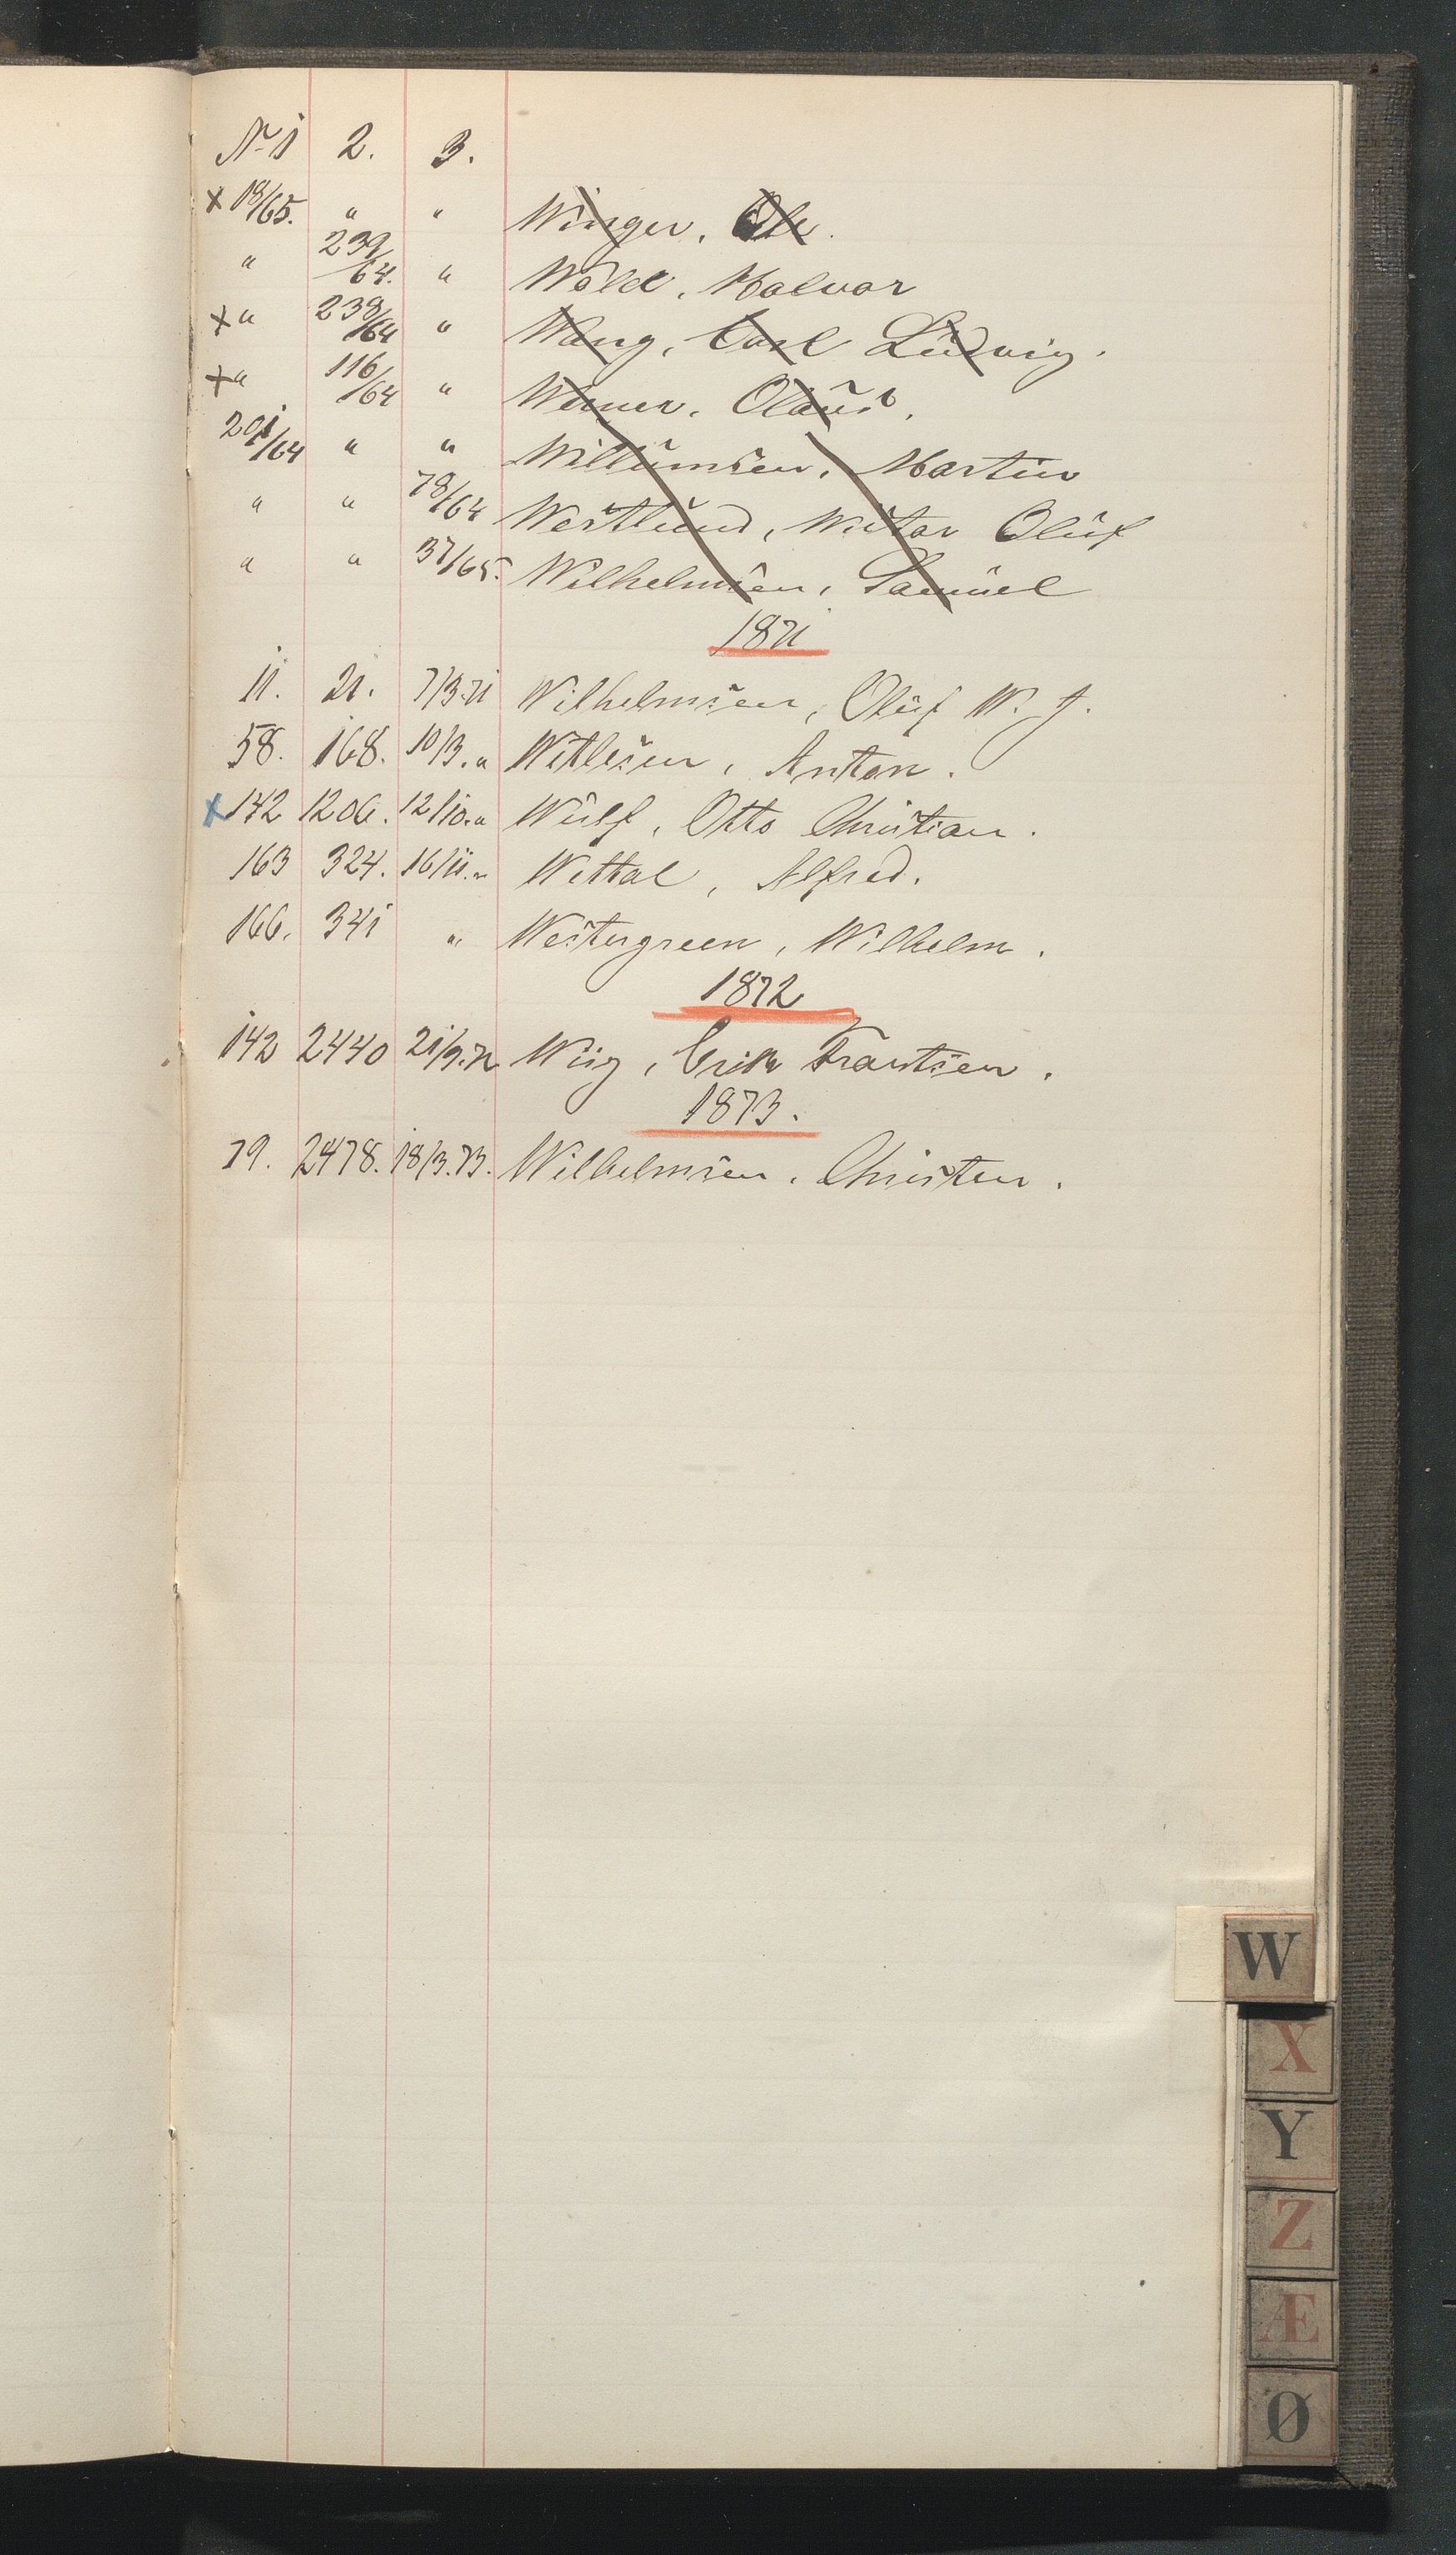 No 1 2. 3.
x 18/65. " " Winger, Ole.
" 239/64. " Wold, Halvor
x " 238/64 " Wang, Carl Ludvig.
x " 116/64 " Werner, Olaus.
201/64 " " Willumsen, Martin
" " 78/64 Westlund, Wictor Oluf
" " 37/65. Wilhelmsen, Samuel
1871
11. 21. 7/3.71 Wilhelmsen, Oluf W. J.
58. 168. 10/3. " Witlesen, Anton.
x 142 1206. 12/10. " Wulf, Otto Christian.
163 324. 16/11. " Wettal, Alfred.
166. 341 " Westergreen, Wilhelm.
1872
142 2440 21/9.72 Wiig, Erik Frantsen.
1873.
79. 2478. 18/3.73. Wilhelmsen, Christen.
W
X
Y
Z
Æ
Ø